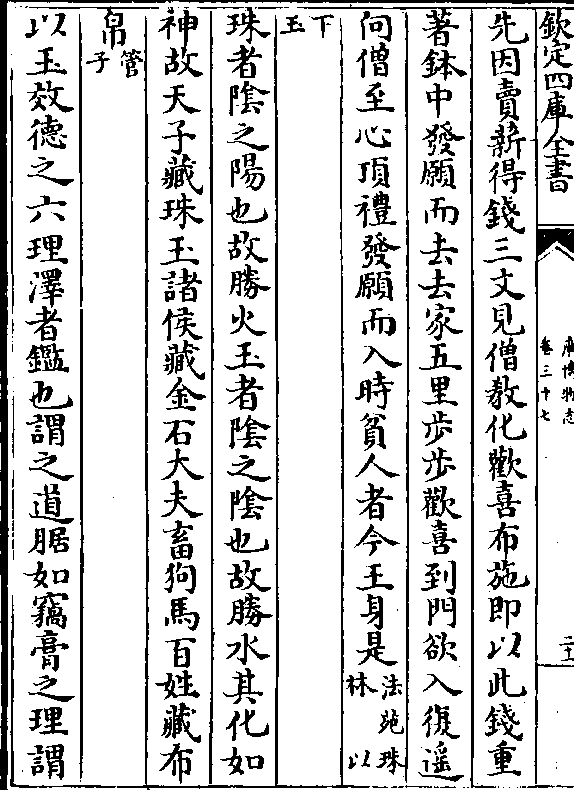 欽定四庫全書
廣博物志
卷三十七
先因賣薪得錢三文見僧教化歡喜布施即以此錢重
著鉢中發願而去去家五里步步歡喜到門欲入復遥
向僧至心頂禮發願而入時貧人者今王身是法苑珠林以
下玉
珠者陰之陽也故勝火玉者陰之陰也故勝水其化如
神故天子藏珠玉諸侯藏金石大夫畜狗馬百姓藏布
帛管子
以玉效德之六理澤者鑑也謂之道腒如竊膏之理謂